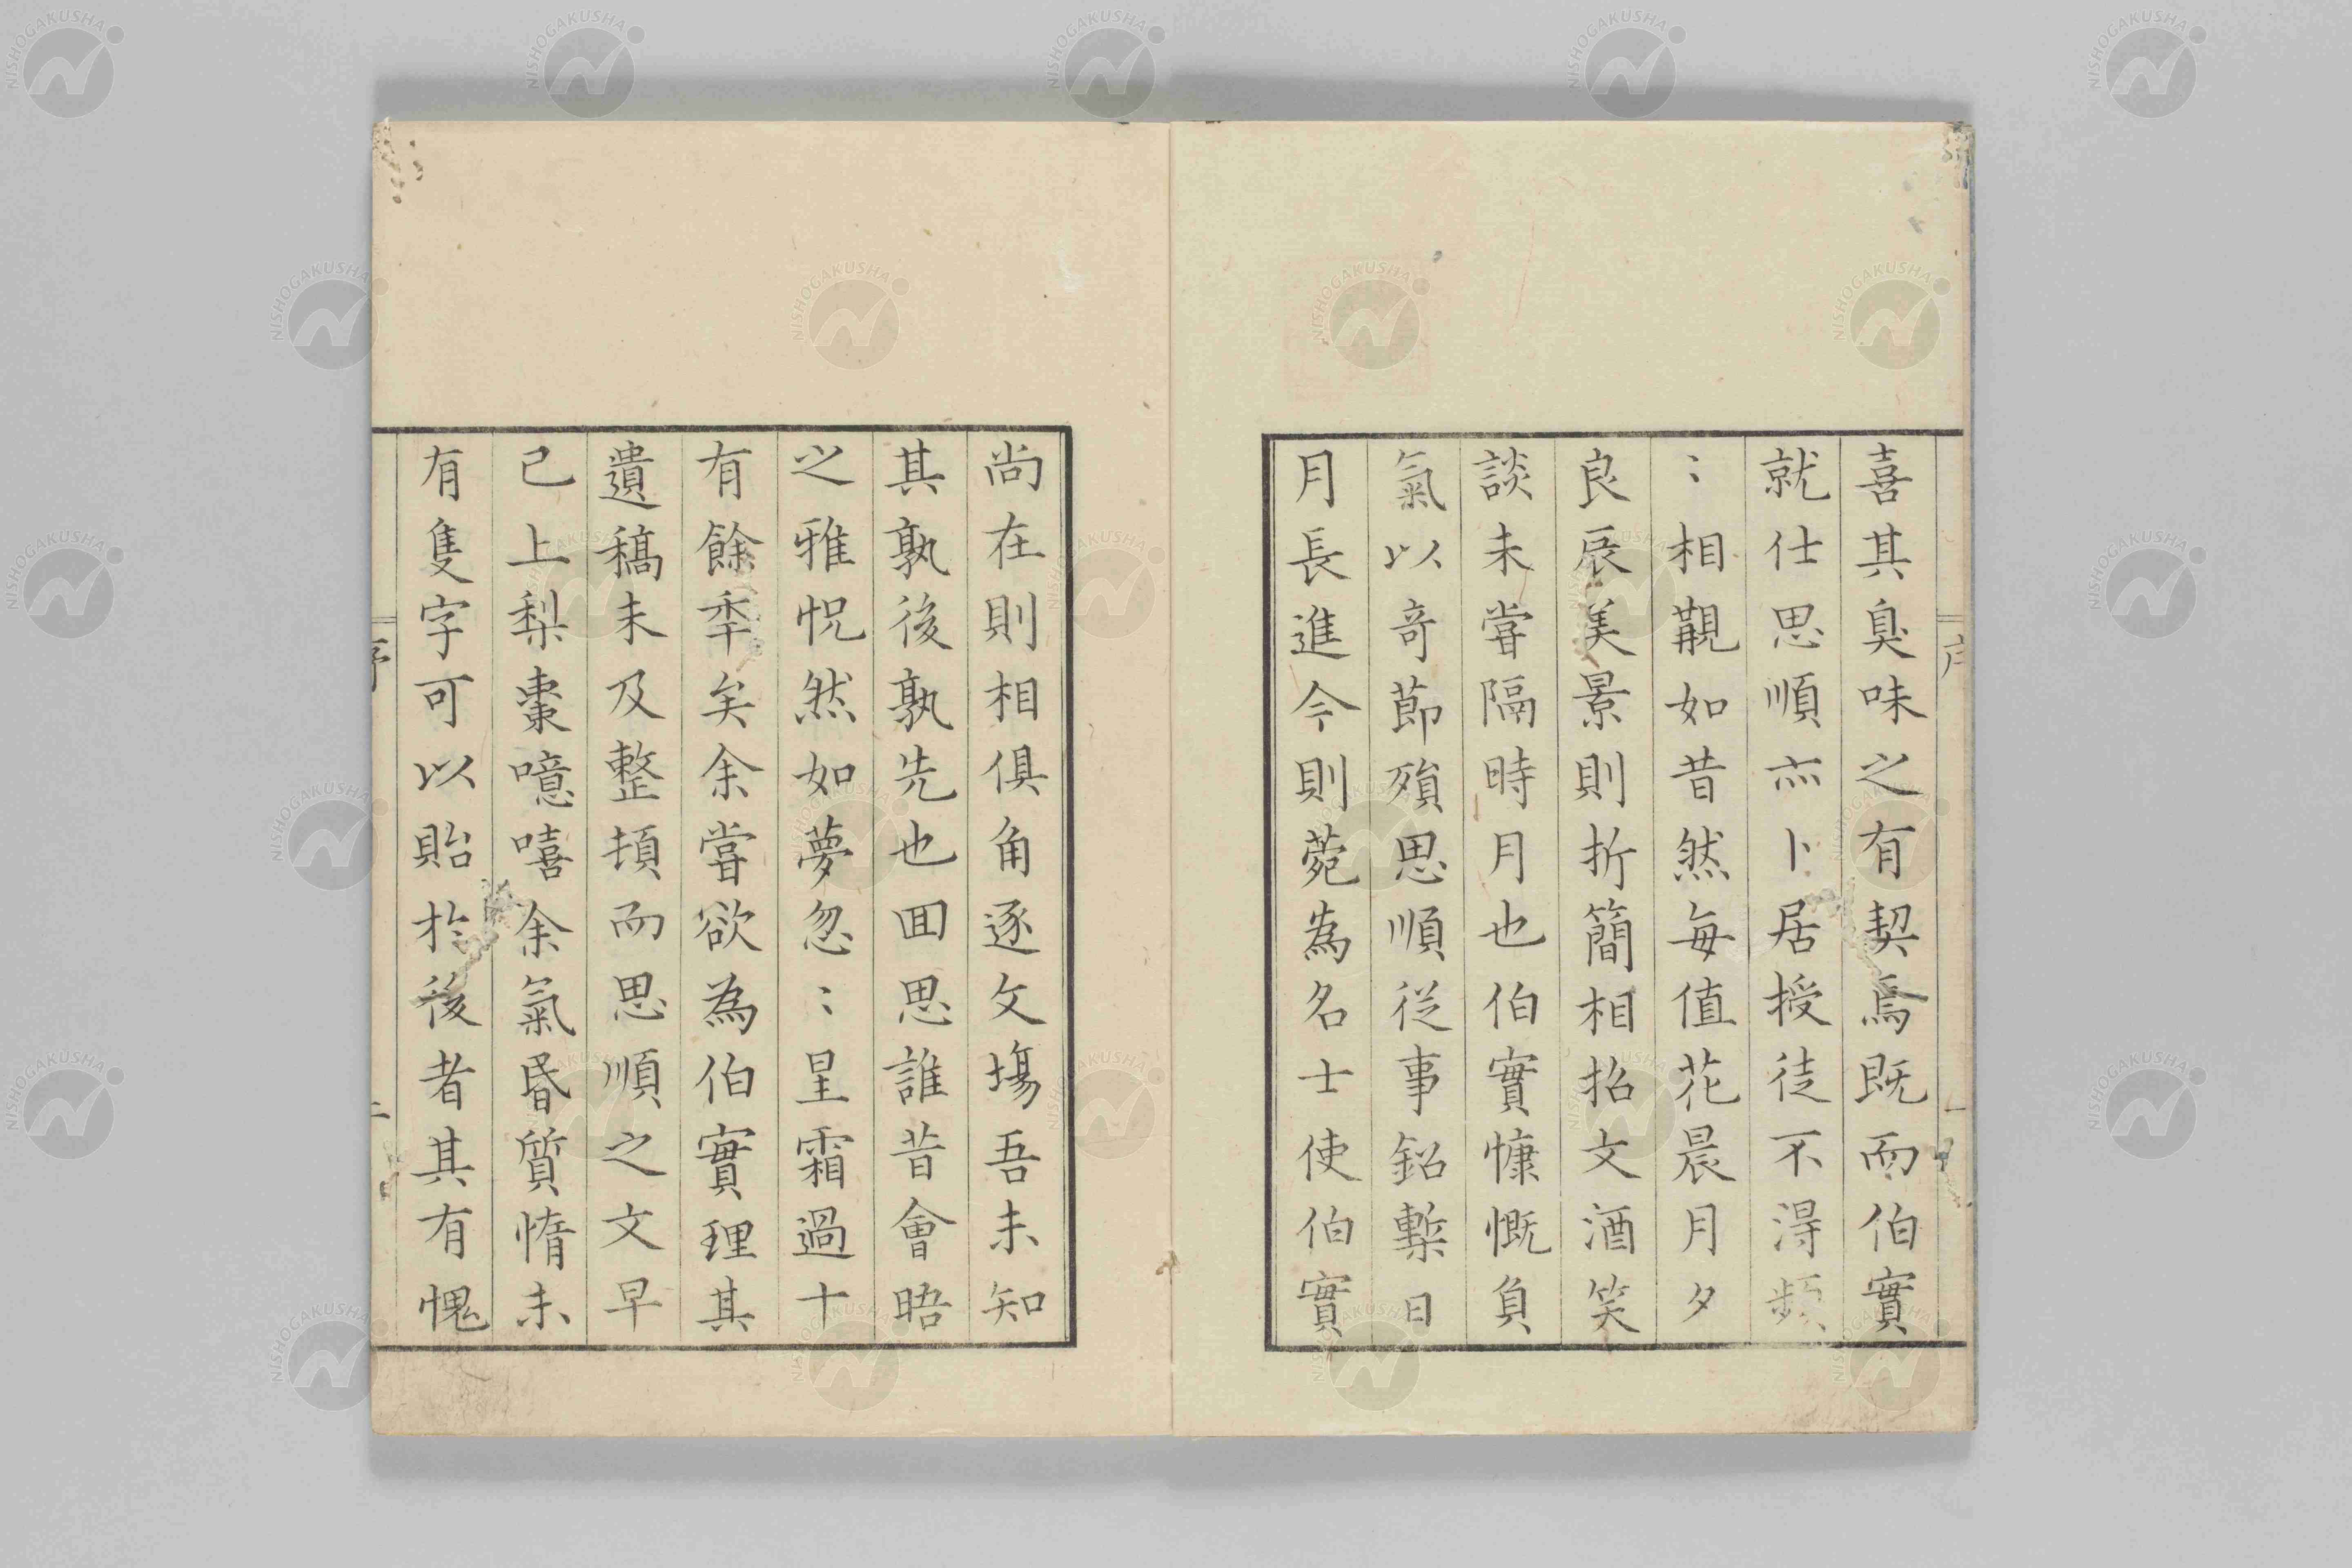 喜其臭味之有契焉既而伯實
就仕思順亦卜居授徒不得頻
〻相覯如昔然每值花晨月夕
良辰美景則折簡相招文酒笑
談未嘗隔時月也伯實慷慨負
氣以奇節殞思順從事鉛槧日
月長進今則蔚為名士使伯實
尚在則相俱角逐文場吾未知
其孰後孰先也囬思誰昔會晤
之雅怳然如夢忽〻星霜過十
有餘年矣余嘗欲為伯實理其
遺稿未及整頓而思順之文早
已上梨棗噫嘻余氣昬質惰未
有隻字可以貽於後者其有愧
序
一
序
二
NISHOGAKUSHA